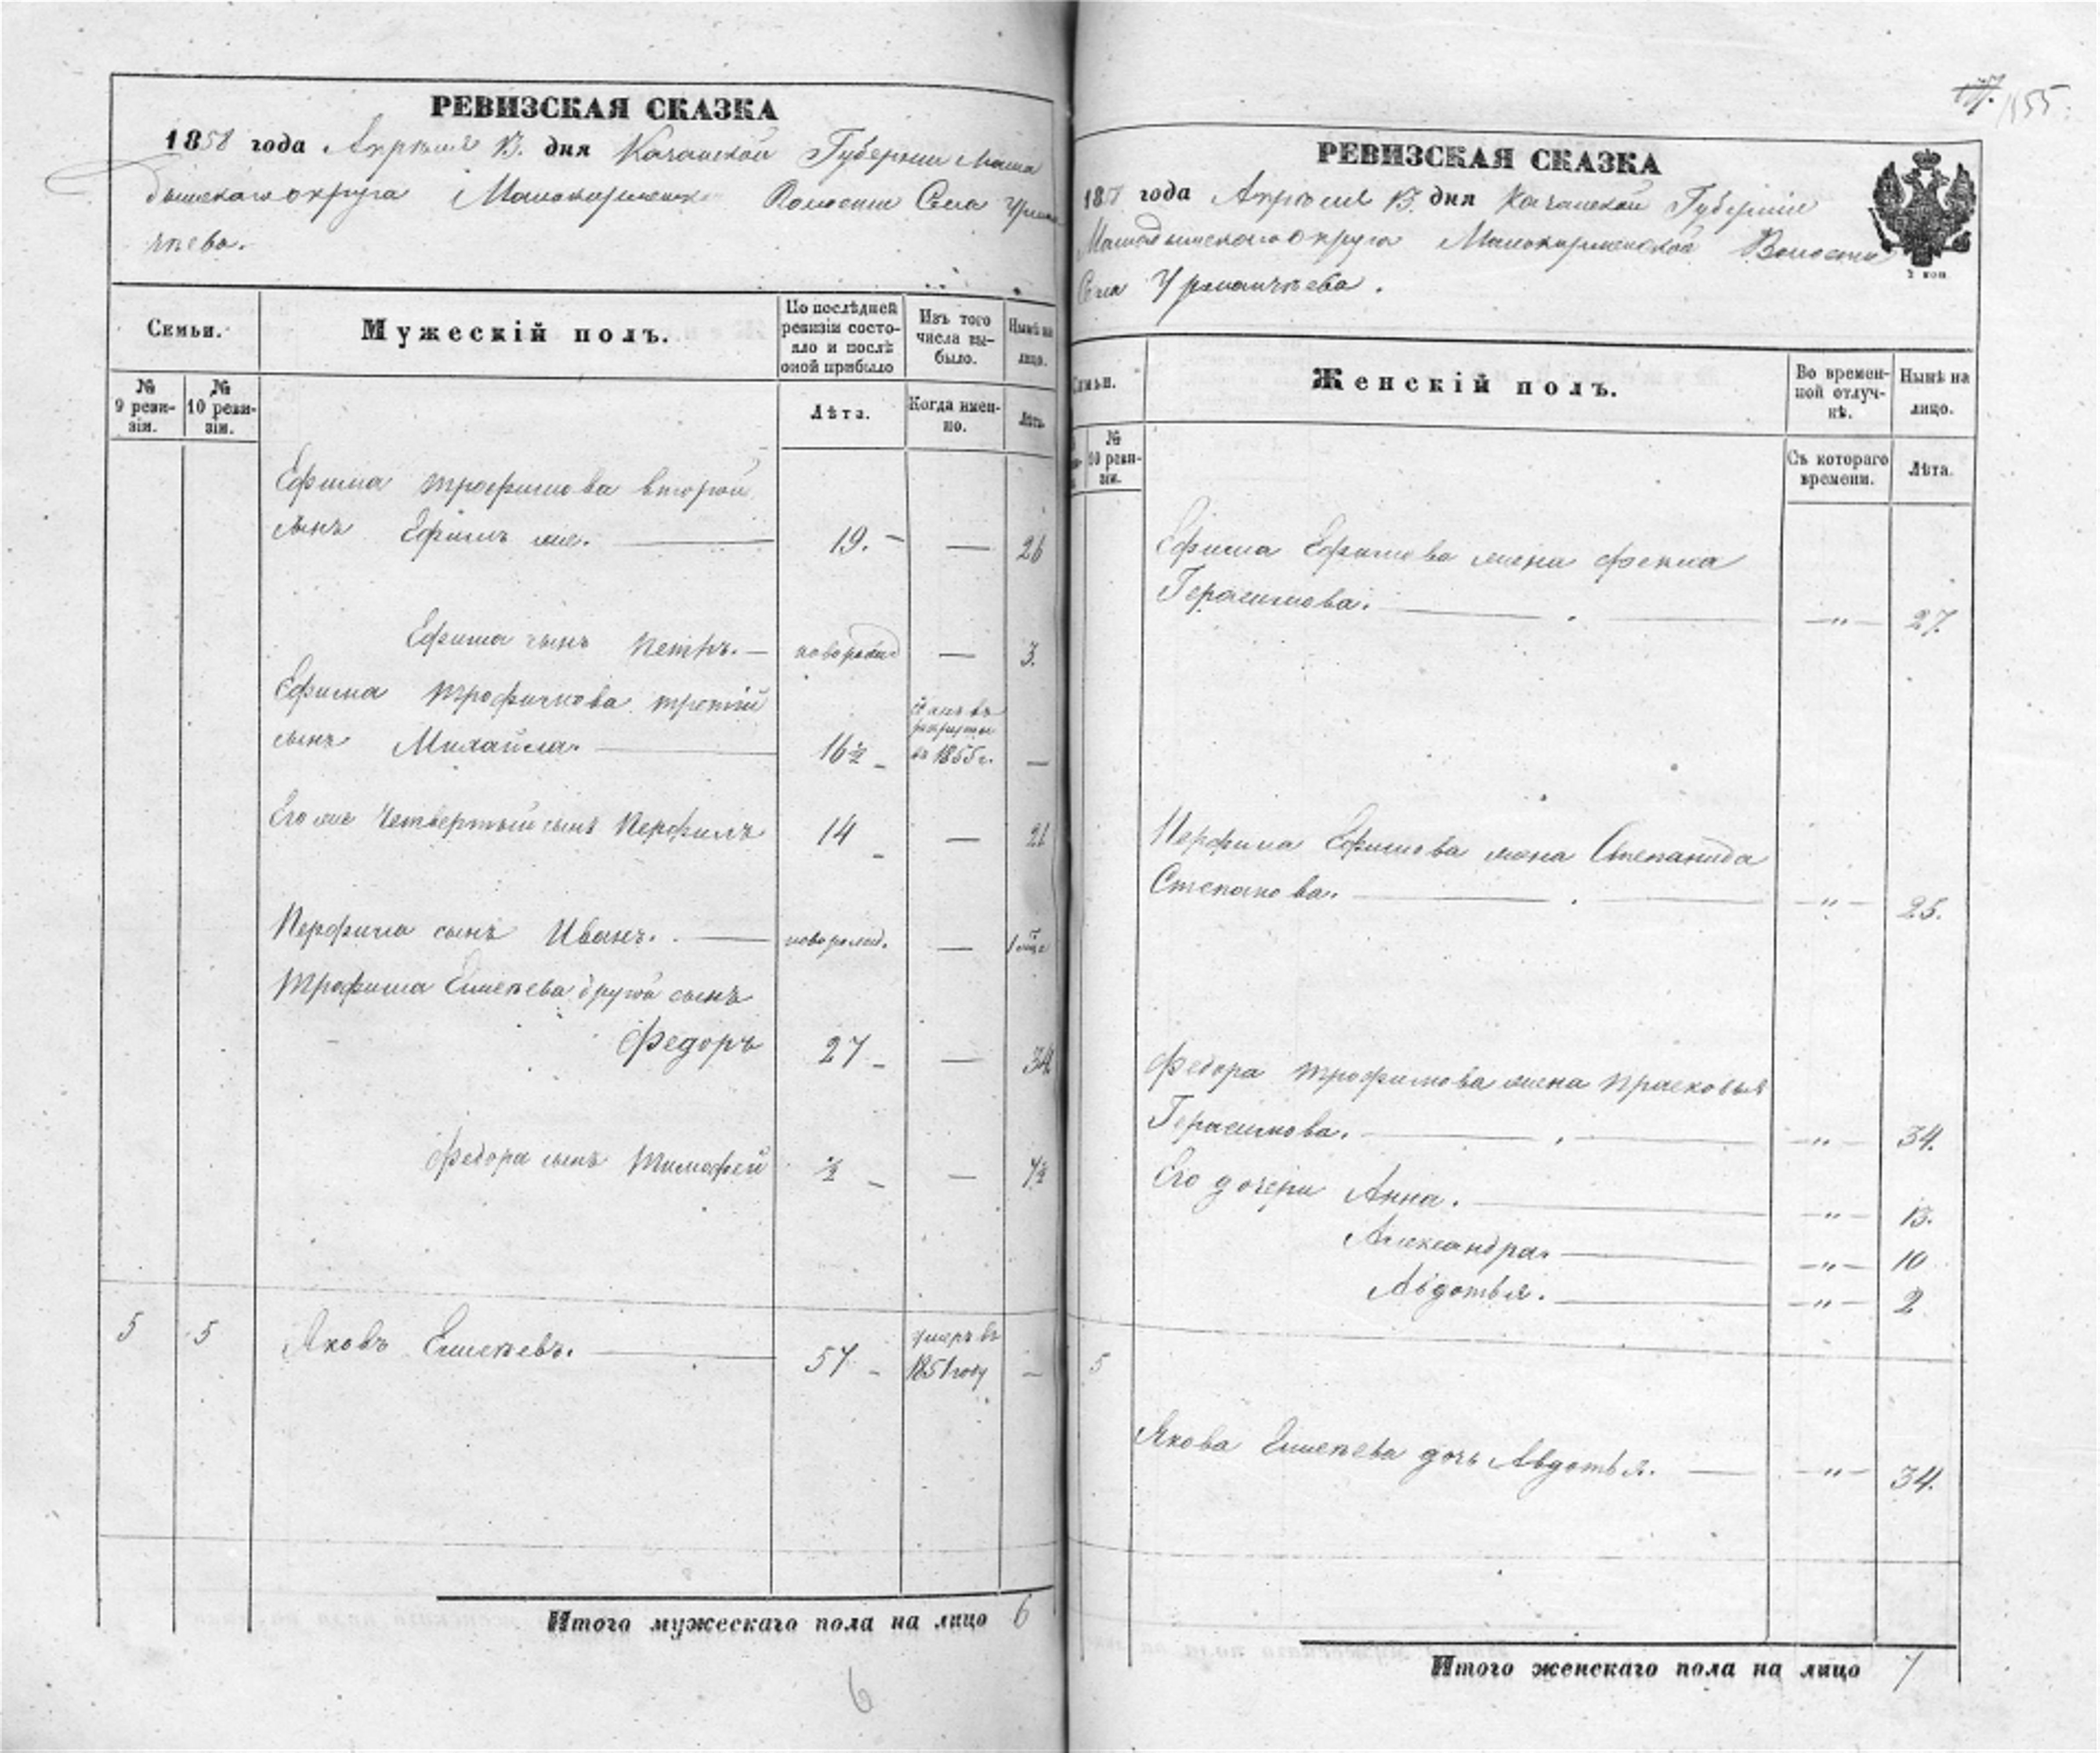 РЕВИЗСКАЯ СКАЗКА
1858 года Апрѣля 13. дня Казанской Губернии Мама
дышскаго округа Малокирменской Волости Села Урман
чѣева.
Семьи.
Мужескій полъ.
По послѣдней ревизіи состояло и послѣ оной прибыло
Изъ того числа выбыло.
Нынѣ на лицо.
№ 9 ревизіи.
№ 10 ревизіи.
Лѣта.
Когда именно.
Лѣта.
Ефима Трофимова второй
сынъ Ефимъ же. 19. — 26
Ефима сынъ Петръ. — новорожд — 3.
Ефима Трофимова третій
сынъ Михайла. 16½ Сданъ въ рекруты въ 1855 г. —
Его же Четвертый сынъ Перфилъ 14 — 21
Перфила сынъ Иванъ. новорожд. — 1
Трофима Елисѣева другой сынъ
Федоръ 27 — 34.
Федора сынъ Тимофей ½ — 7½
5 5 Яковъ Елисѣевъ. 57 умеръ въ 1851 году —
Итого мужескаго пола на лицо 6
6
155.
РЕВИЗСКАЯ СКАЗКА
1858 года Апрѣля 13. дня Казанской Губерніи
Мамадышскаго округа Малокирменской Волости
Села Урманчѣева.
2 коп
Семьи.
Женскій полъ.
Во временной отлучкѣ.
Нынѣ на лицо.
№ 10 ревизіи.
Съ котораго времени.
Лѣта.
Ефима Ефимова жена Фекла
Герасимова. — " — 27.
Перфила Ефимова жена Степанида
Степанова. — " — 25.
Федора Трофимова жена Прасковья
Герасимова. — " — 34.
Его дочери Анна. — " — 13.
Александра. — " — 10
Авдотья. — " — 2
5
Якова Елисѣева дочь Авдотья. — " — 34.
Итого женскаго пола на лицо 7